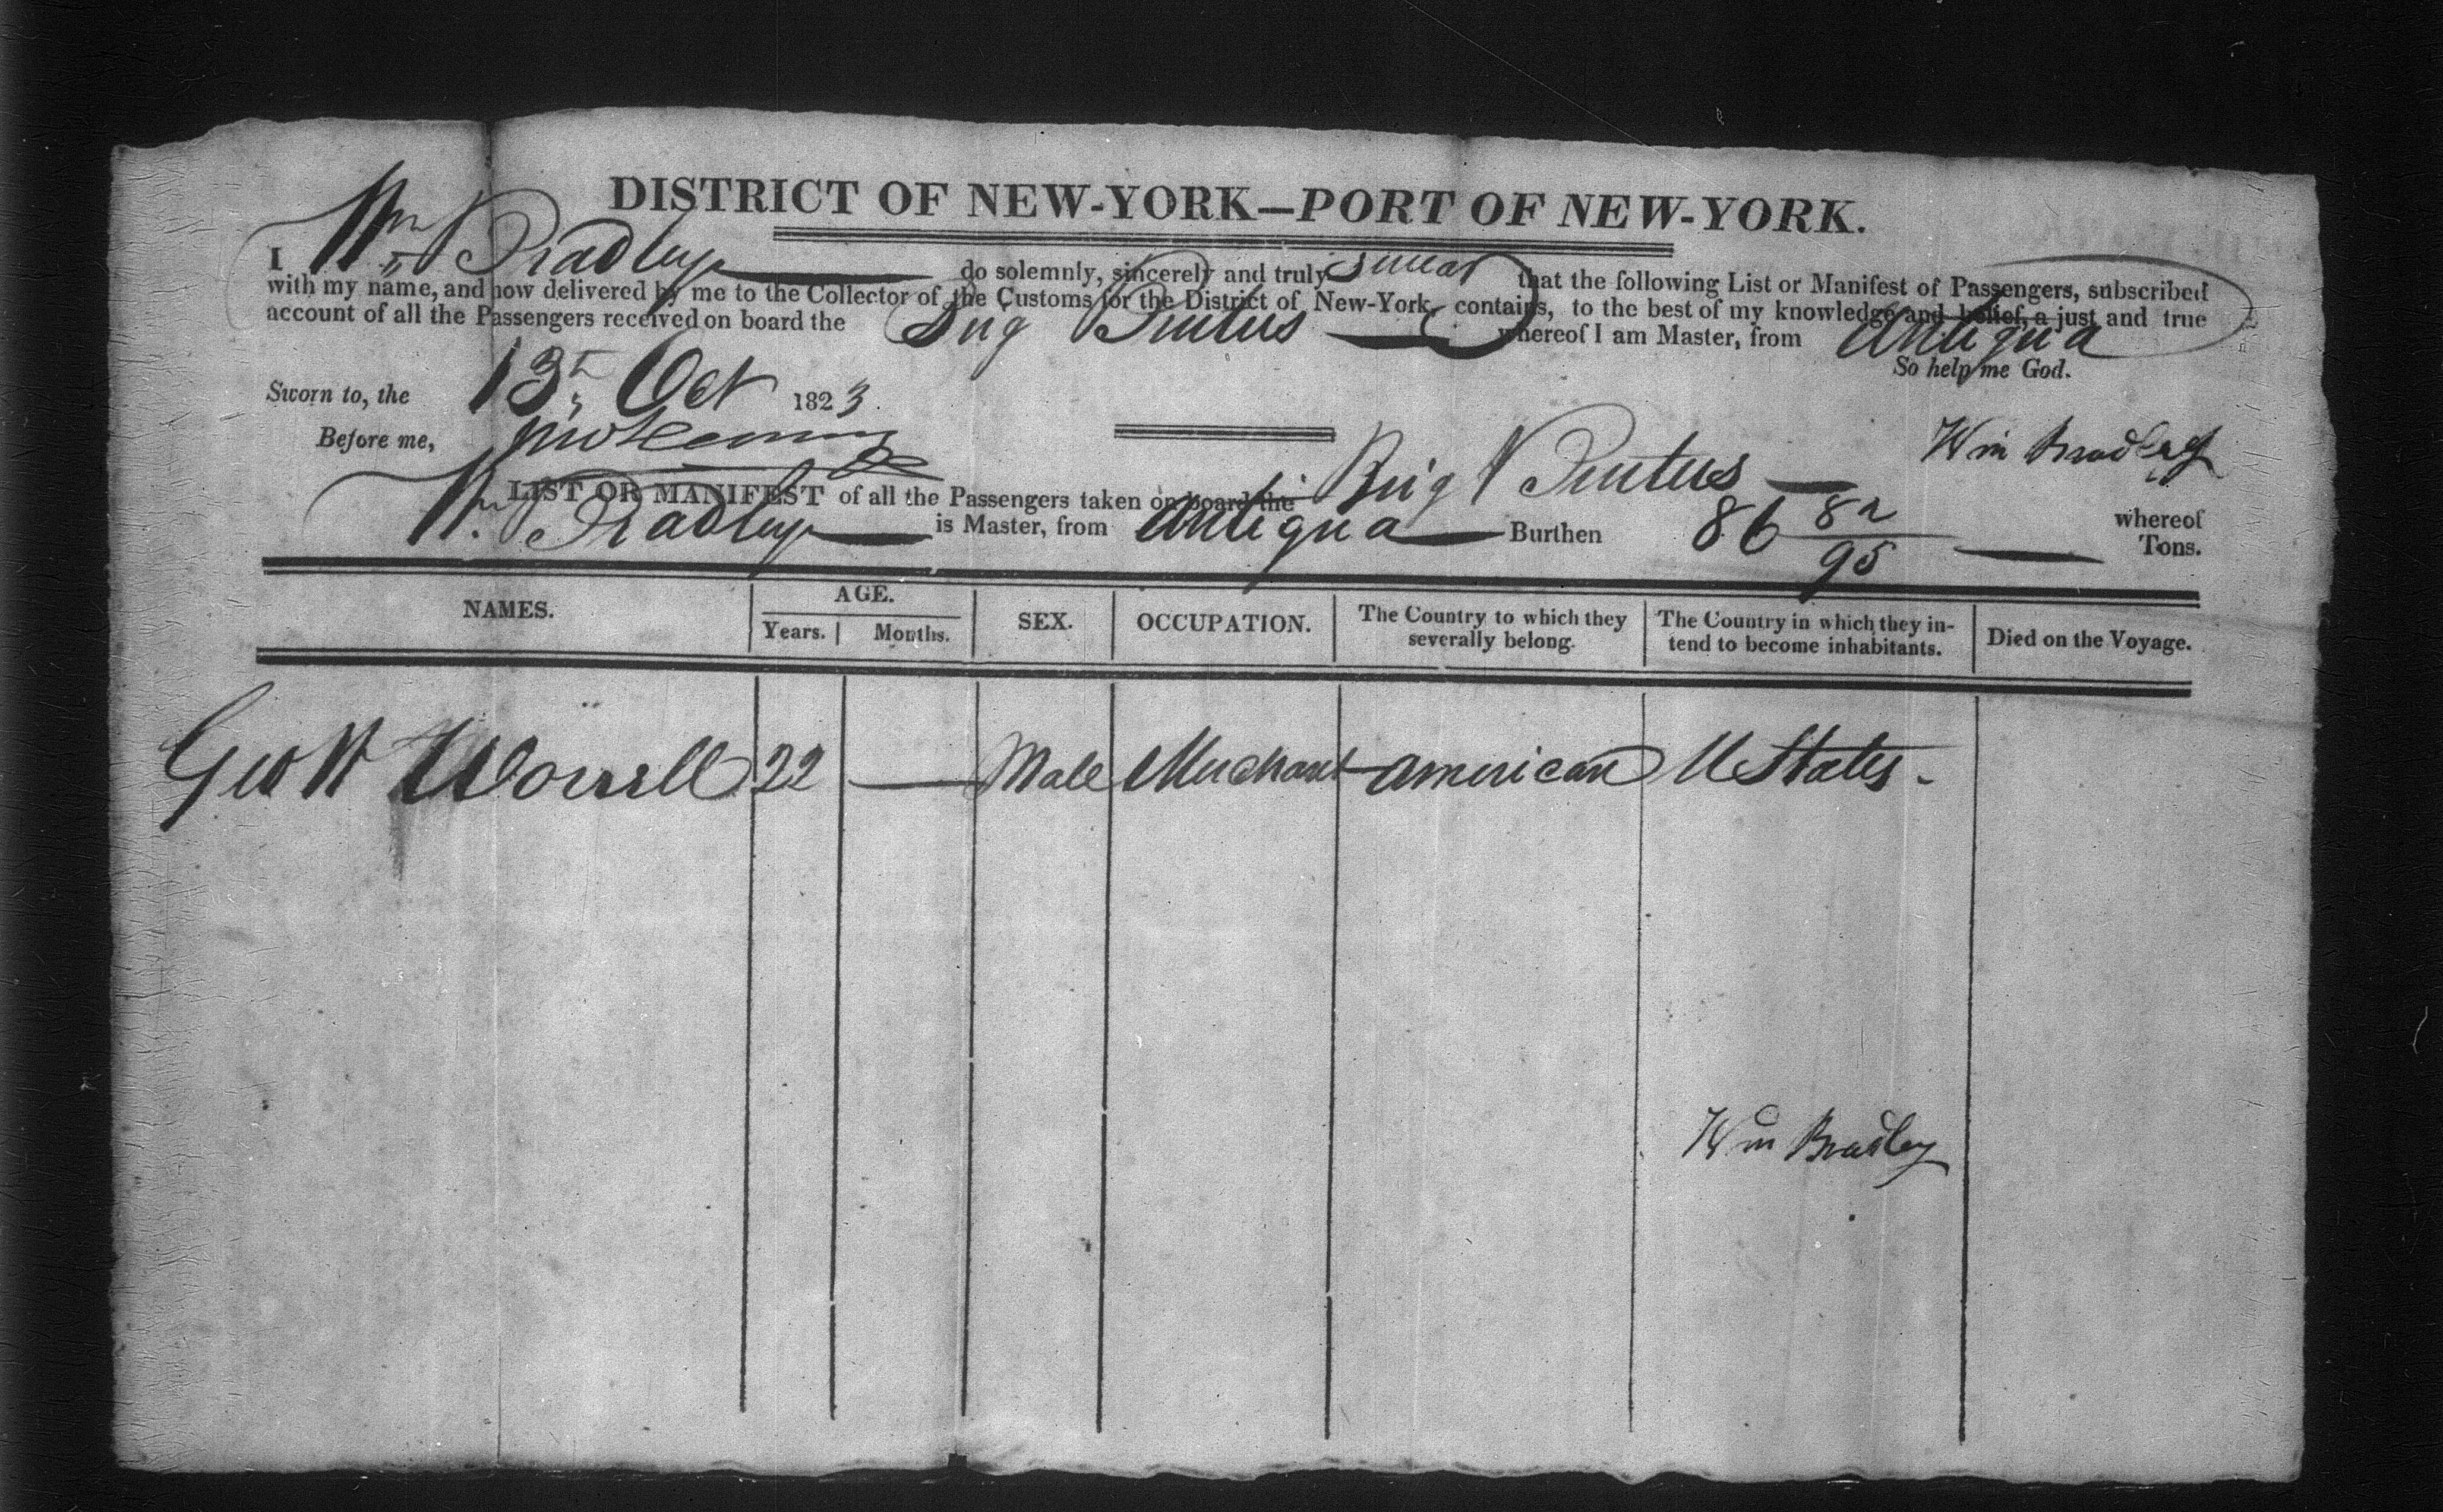 DISTRICT OF NEW-YORK—PORT OF NEW-YORK.
I Wm Bradley do solemnly, sincerely and truly swear that the following List or Manifest of Passengers, subscribed
with my name, and now delivered by me to the Collector of the Customs for the District of New-York, contains, to the best of my knowledge and belief, a just and true
account of all the Passengers received on board the Brig Brutus whereof I am Master, from Antigua
So help me God.
Sworn to, the 13th Oct 1823.
Before me,
Wm Bradley
LIST OR MANIFEST of all the Passengers taken on board the Brig Brutus whereof
Wm Bradley is Master, from Antigua Burthen 86 82/95 Tons.
NAMES. AGE. SEX. OCCUPATION. The Country to which they severally belong. The Country in which they in-tend to become inhabitants. Died on the Voyage.
Years. Months.
Geo W Worrell 22 — Male Merchant American U States -
Wm Bradley